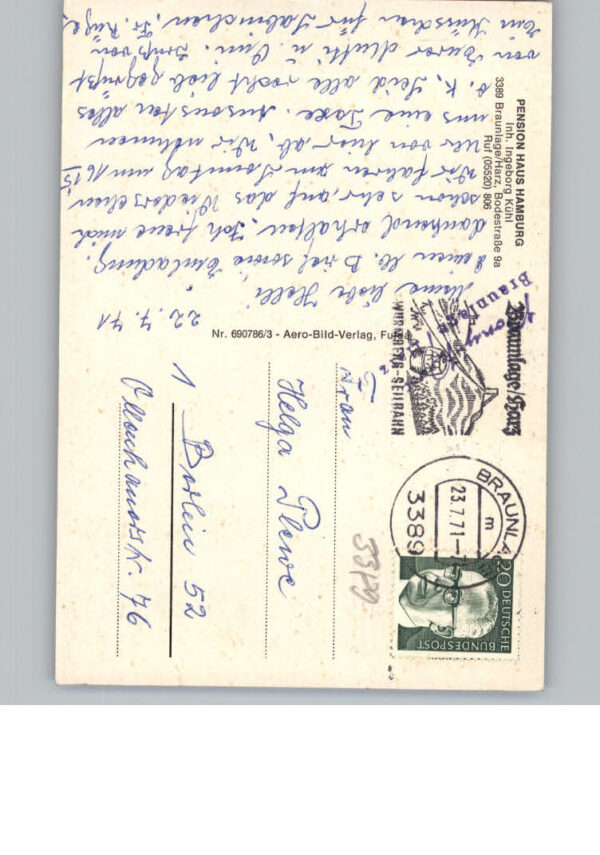 PENSION HAUS HAMBURG
Inh. Ingeborg Kühl
3389 Braunlage/Harz, Bodestraße 9a
Ruf (05520) 806
22.7.71
Meine liebe Helli
Deinen lb. Brief sowie Einladung,
dankend erhalten. Ich freue mich
schon sehr, auf das Wiedersehen
Wir fahren am Sonntag um 16 15
Uhr von hier ab, wir nehmen
uns eine Taxe. Ansonsten alles
o. K. Seid alle recht lieb gegrüßt
von Eurer Mutti u. Omi. Gruß von
Ein Küsschen für Sabinchen. Fr.
Nr. 690786/3 - Aero-Bild-Verlag, Fulda
Braunlage/Harz
WURMBERG-SEILBAHN
Braunlage
BRAUNLA
23.7.71
m
3389
20 DEUTSCHE
BUNDESPOST
Frau
Helga Plewe
1 Berlin 52
Ollenhauerstr. 76